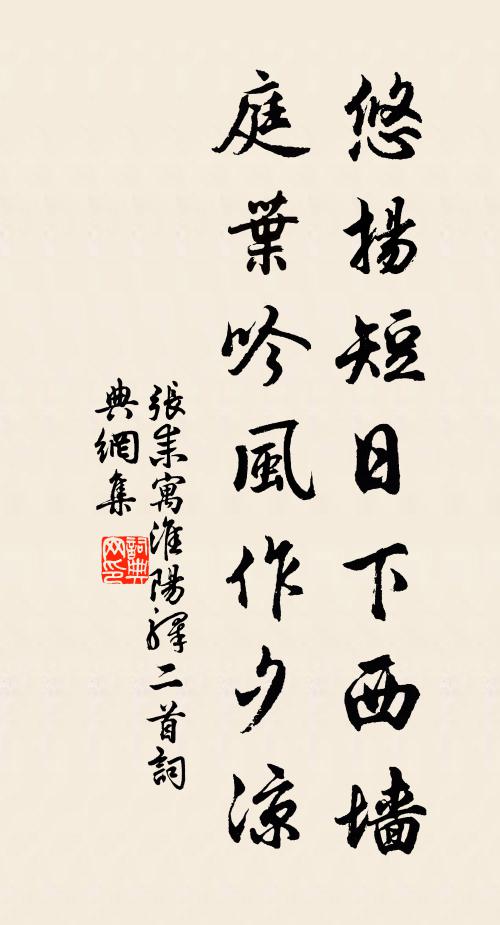 悠揚短日下西墻
庭葉吟風作夕涼
張耒寓淮陽驛二首詞
典網集
詞典
网印